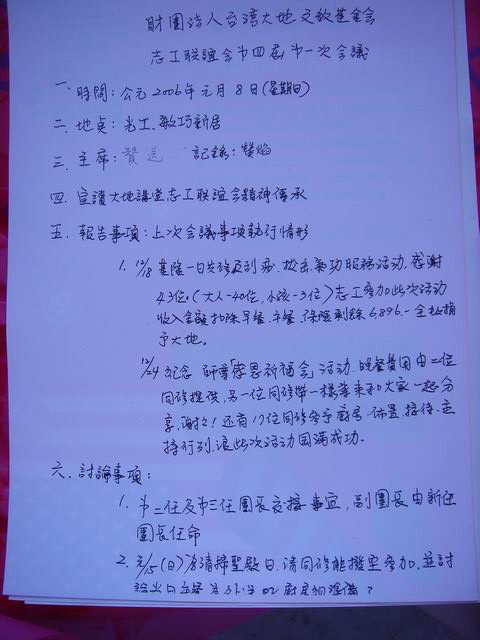 財團法人台灣大地文教基金會
志工联誼会第四屆第一次会議
一、時間：公元2006年元月8日(星期日)
二、地点：光工、敏巧新居
三、主席：贊送 記錄：瑩焰
四、宣讀大地講堂志工联誼会精神傳承
五、報告事項：上次会議事項執行情形
1. 12/18 基隆一日 氣功服務活动、感謝
43位。(大人-40位、小孩-3位)志工参加此次活动
收入金額扣除早餐、午餐、保險剩餘6,896.-全数捐
予大地。
12/24 紀念 師尊「感恩祈福会」活动，晚餐費用由二位
同修提供，另一位同修帶一樣菜來和大家一起分
享，謝々！还有17位同修参予廚房、佈置、接待、主
持行列，讓此次活动圓滿成功。
六、討論事項：
1. 第二任及第三任團長交接事宜，副團長由新任
團長任命
2. 元/15(日)為清掃聖殿日，請同修能撥空参加，並討
論出